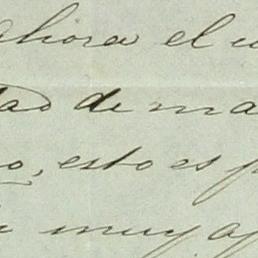 ahora el
dad de ma
o, esto es p
muy a